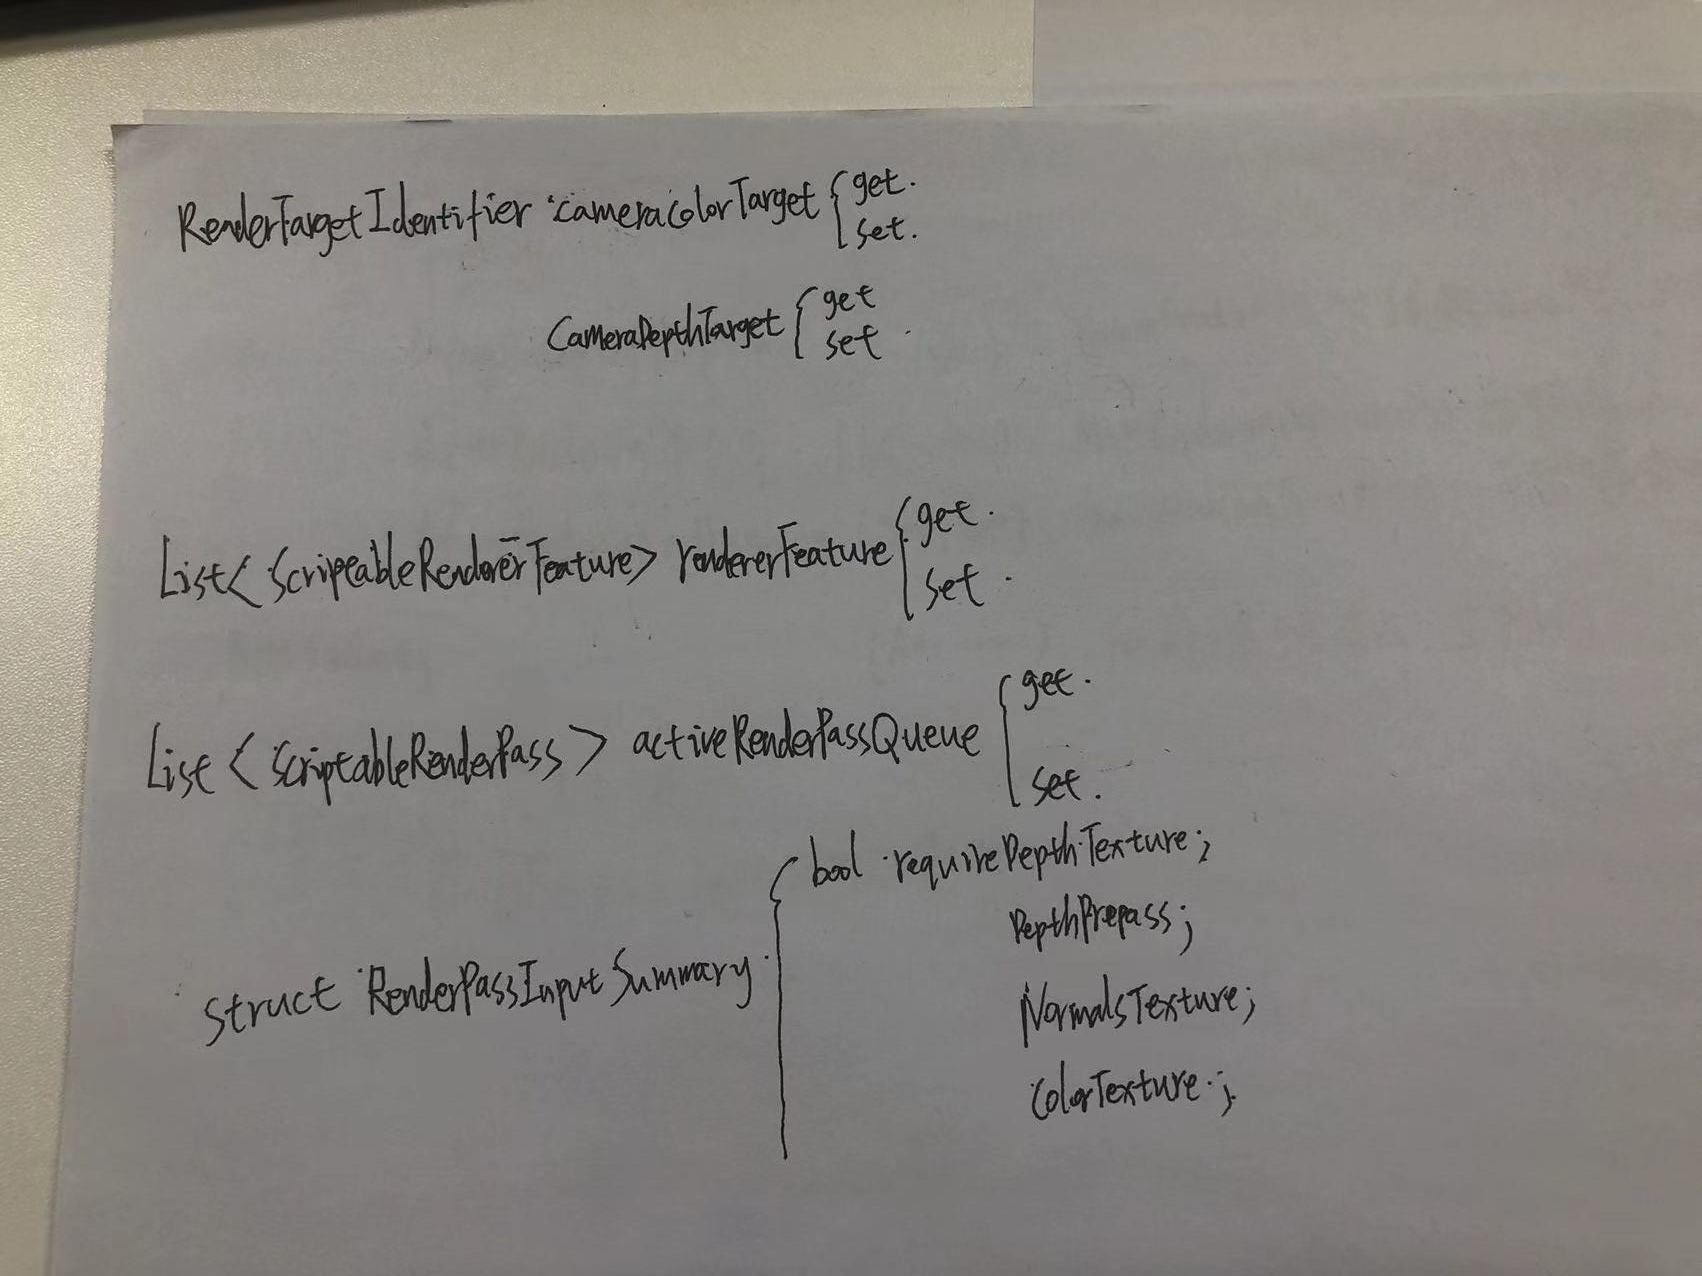 RenderTargetIdentifier cameraColorTarget { get.
set.
CameraDepthTarget { get
set
List< ScripeableRendererFeature> rendererFeature { get.
set
List < ScriptableRenderPass > activeRenderPassQueue { get.
set.
struct RenderPassInputSummary { bool requireDepthTexture;
DepthPrepass;
NormalsTexture;
ColorTexture;